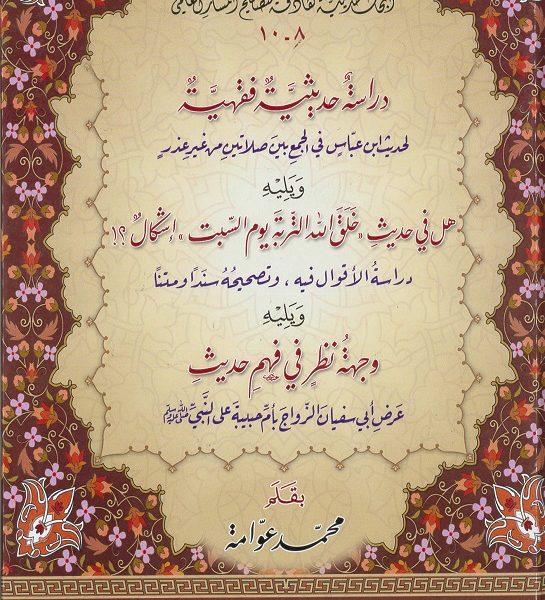 ١٠-٨
دراسةٌ حديثيَّةٌ فقهيَّةٌ
لحديث ابن عباسٍ في الجمع بين صلاتين من غير عذرٍ
وَيَلِيْهِ
هل في حديثِ «خَلَقَ الله التُّربَةَ يومَ السّبت» إشكالٌ؟!
دراسةُ الأقوال فيه، وتصحيحُهُ سندًا ومتنًا
وَيَلِيْهِ
وجهةُ نظرٍ في فهمِ حديثِ
عَرضِ أبي سفيان الزّواجَ بأمّ حبيبة على النّبيّ ﷺ
بقَلَم
محمّد عوّامة